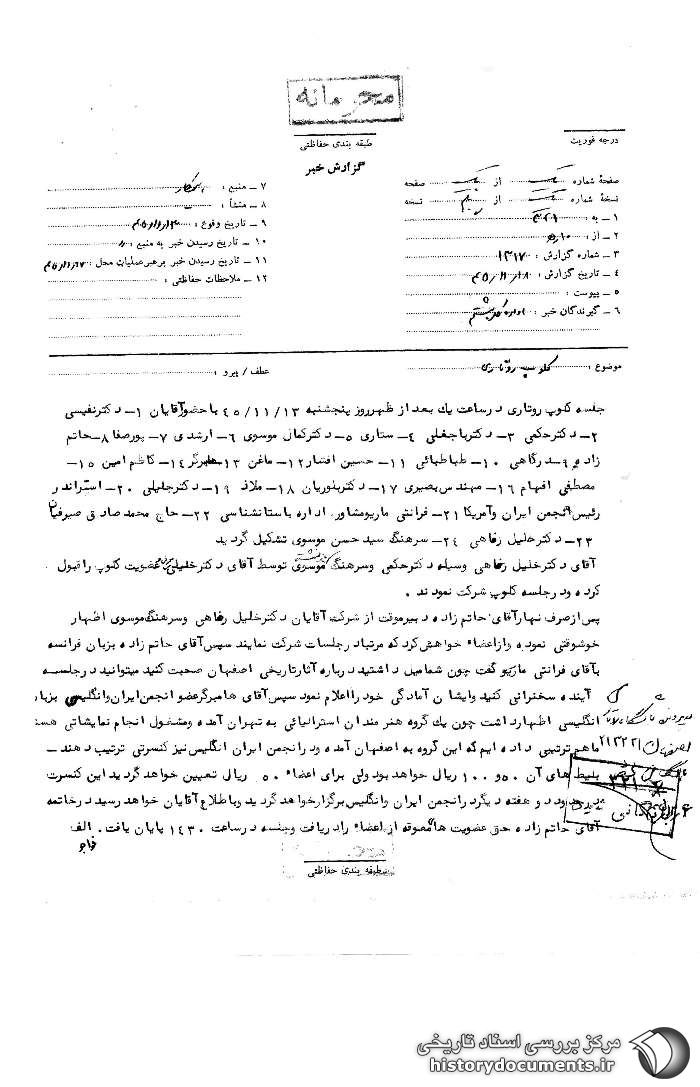 محرمانه
طبقه بندی حفاظتی
درجه فوریت
گزارش خبر
صفحهٔ شماره یک از یک صفحه
نسخهٔ شماره یک از نسخه
۱ - به : ۳۲۱
۲ - از : ۱۰ ه
۳ - شماره گزارش : ۱۳۱۷۰
۴ - تاریخ گزارش : ۴۵/۱۱/۱۸
۵ - پیوست :
۶ - گیرندگان خبر : اداره کل
۷ - منبع : همکار
۸ - منشأ :
۹ - تاریخ وقوع : ۴۵/۱۱/۱۳
۱۰ - تاریخ رسیدن خبر به منبع :
۱۱ - تاریخ رسیدن خبر برهبر عملیات محل : ۴۵/۱۱/۱۷
۱۲ - ملاحظات حفاظتی :
موضوع : کلوپ روتاری
عطف / پیرو :
جلسه کلوپ روتاری در ساعت یک بعد از ظهر روز پنجشنبه ۴۵/۱۱/۱۳ با حضور آقایان ۱- دکتر نفیسی
۲- دکتر حکمی ۳- دکتر باجغلی ۴- ستاری ۵- دکتر کمال موسوی ۶- ارشدی ۷- پور صفا ۸- حاتم
زاده ۹- درگاهی ۱۰- طباطبائی ۱۱- حسین افشار ۱۲- ماغن ۱۳- هامبرگر ۱۴- کاظم امین ۱۵-
مصطفی افهام ۱۶- مهندس بصیری ۱۷- دکتر بنوریان ۱۸- ملاذ ۱۹- دکتر جلیلی ۲۰- استراندر
رئیس انجمن ایران و آمریکا ۲۱- فرانتی ماریو مشاور اداره باستانشناسی ۲۲- حاج محمد صادق صیرفیان
۲۳- دکتر خلیل رفاهی ۲۴- سرهنگ سید حسن موسوی تشکیل گردید
آقای دکتر خلیل رفاهی وسیله دکتر حکمی و سرهنگ موسوی توسط آقای دکتر خلیلی عضویت کلوپ را قبول
کرده و در جلسه کلوپ شرکت نمودند .
پس از صرف نهار آقای حاتم زاده دبیر موقت از شرکت آقایان دکتر خلیل رفاهی و سرهنگ موسوی اظهار
خوشوقتی نموده و از اعضاء خواهش کرد که مرتبا در جلسات شرکت نمایند سپس آقای حاتم زاده بزبان فرانسه
به آقای فرانتی ماریو گفت چون شما میل داشتید درباره آثار تاریخی اصفهان صحبت کنید میتوانید در جلسه
آینده سخنرانی کنید و ایشان آمادگی خود را اعلام نمود سپس آقای هامبرگر عضو انجمن ایران و انگلیس بزبان
انگلیسی اظهار داشت چون یک گروه هنرمندان استرالیائی به تهران آمده و مشغول انجام نمایشاتی هستند
ما هم ترتیبی داده ایم که این گروه به اصفهان آمده و در انجمن ایران انگلیس نیز کنسرتی ترتیب دهند -
بلیط های آن ۵۰ و ۱۰۰ ریال خواهد بود ولی برای اعضاء ۵۰ ریال تعیین خواهد گردید این کنسرت
در حدود دو هفته دیگر در انجمن ایران و انگلیس برگزار خواهد گردید و باطلاع آقایان خواهد رسید در خاتمه
آقای حاتم زاده حق عضویت های معوقه از اعضاء را دریافت و جلسه در ساعت ۱۴۳۰ پایان یافت . الف
۲۱۳۲۲۱
طبقه بندی حفاظتی
مرکز بررسی اسناد تاریخی
historydocuments.ir